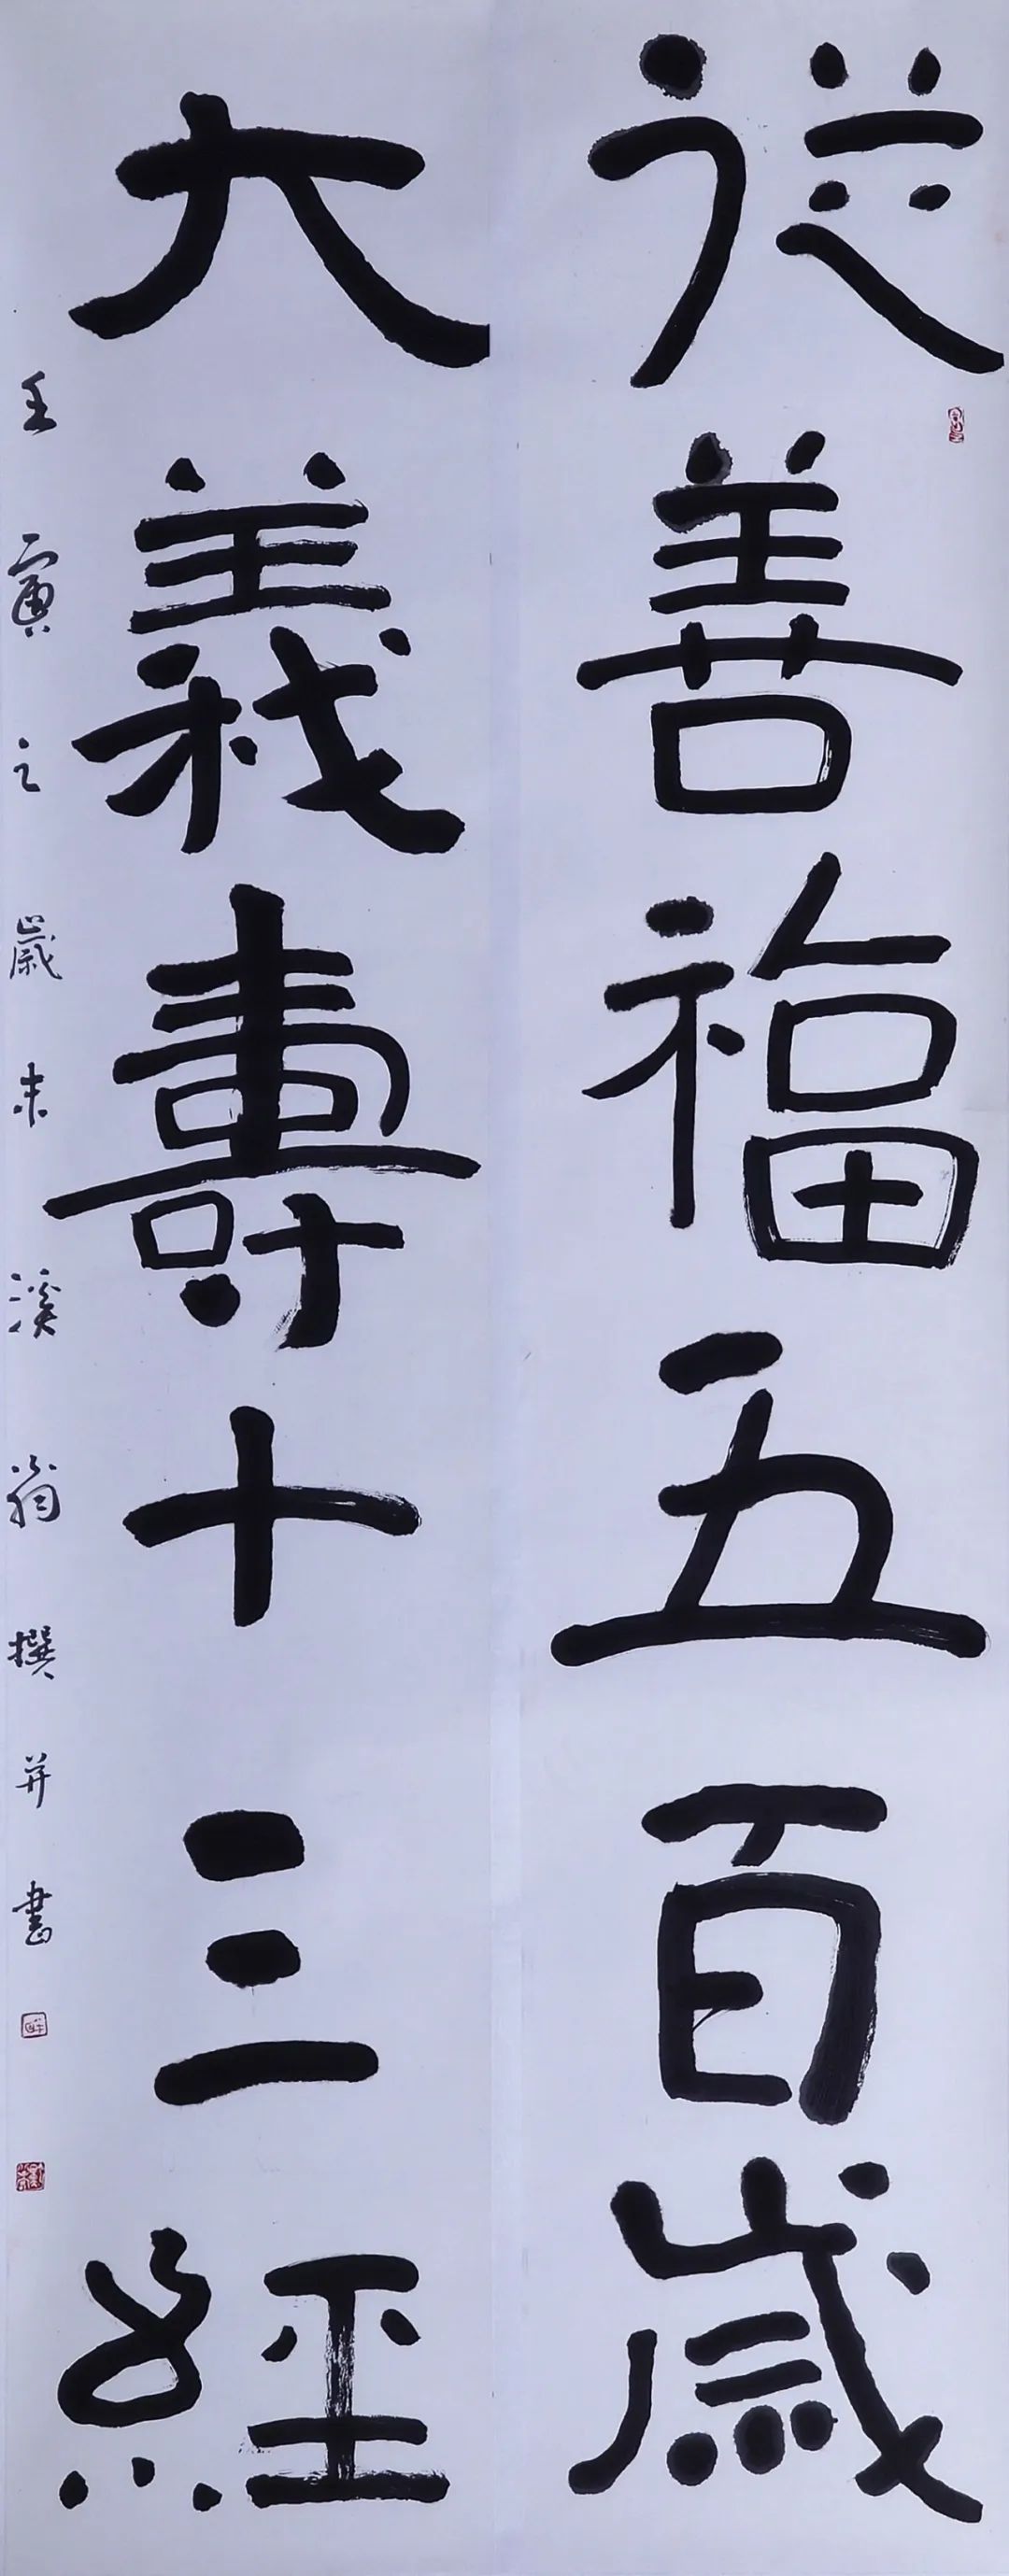 從善福五百歲
大義壽十三經
壬寅之歲末溪翁撰并書